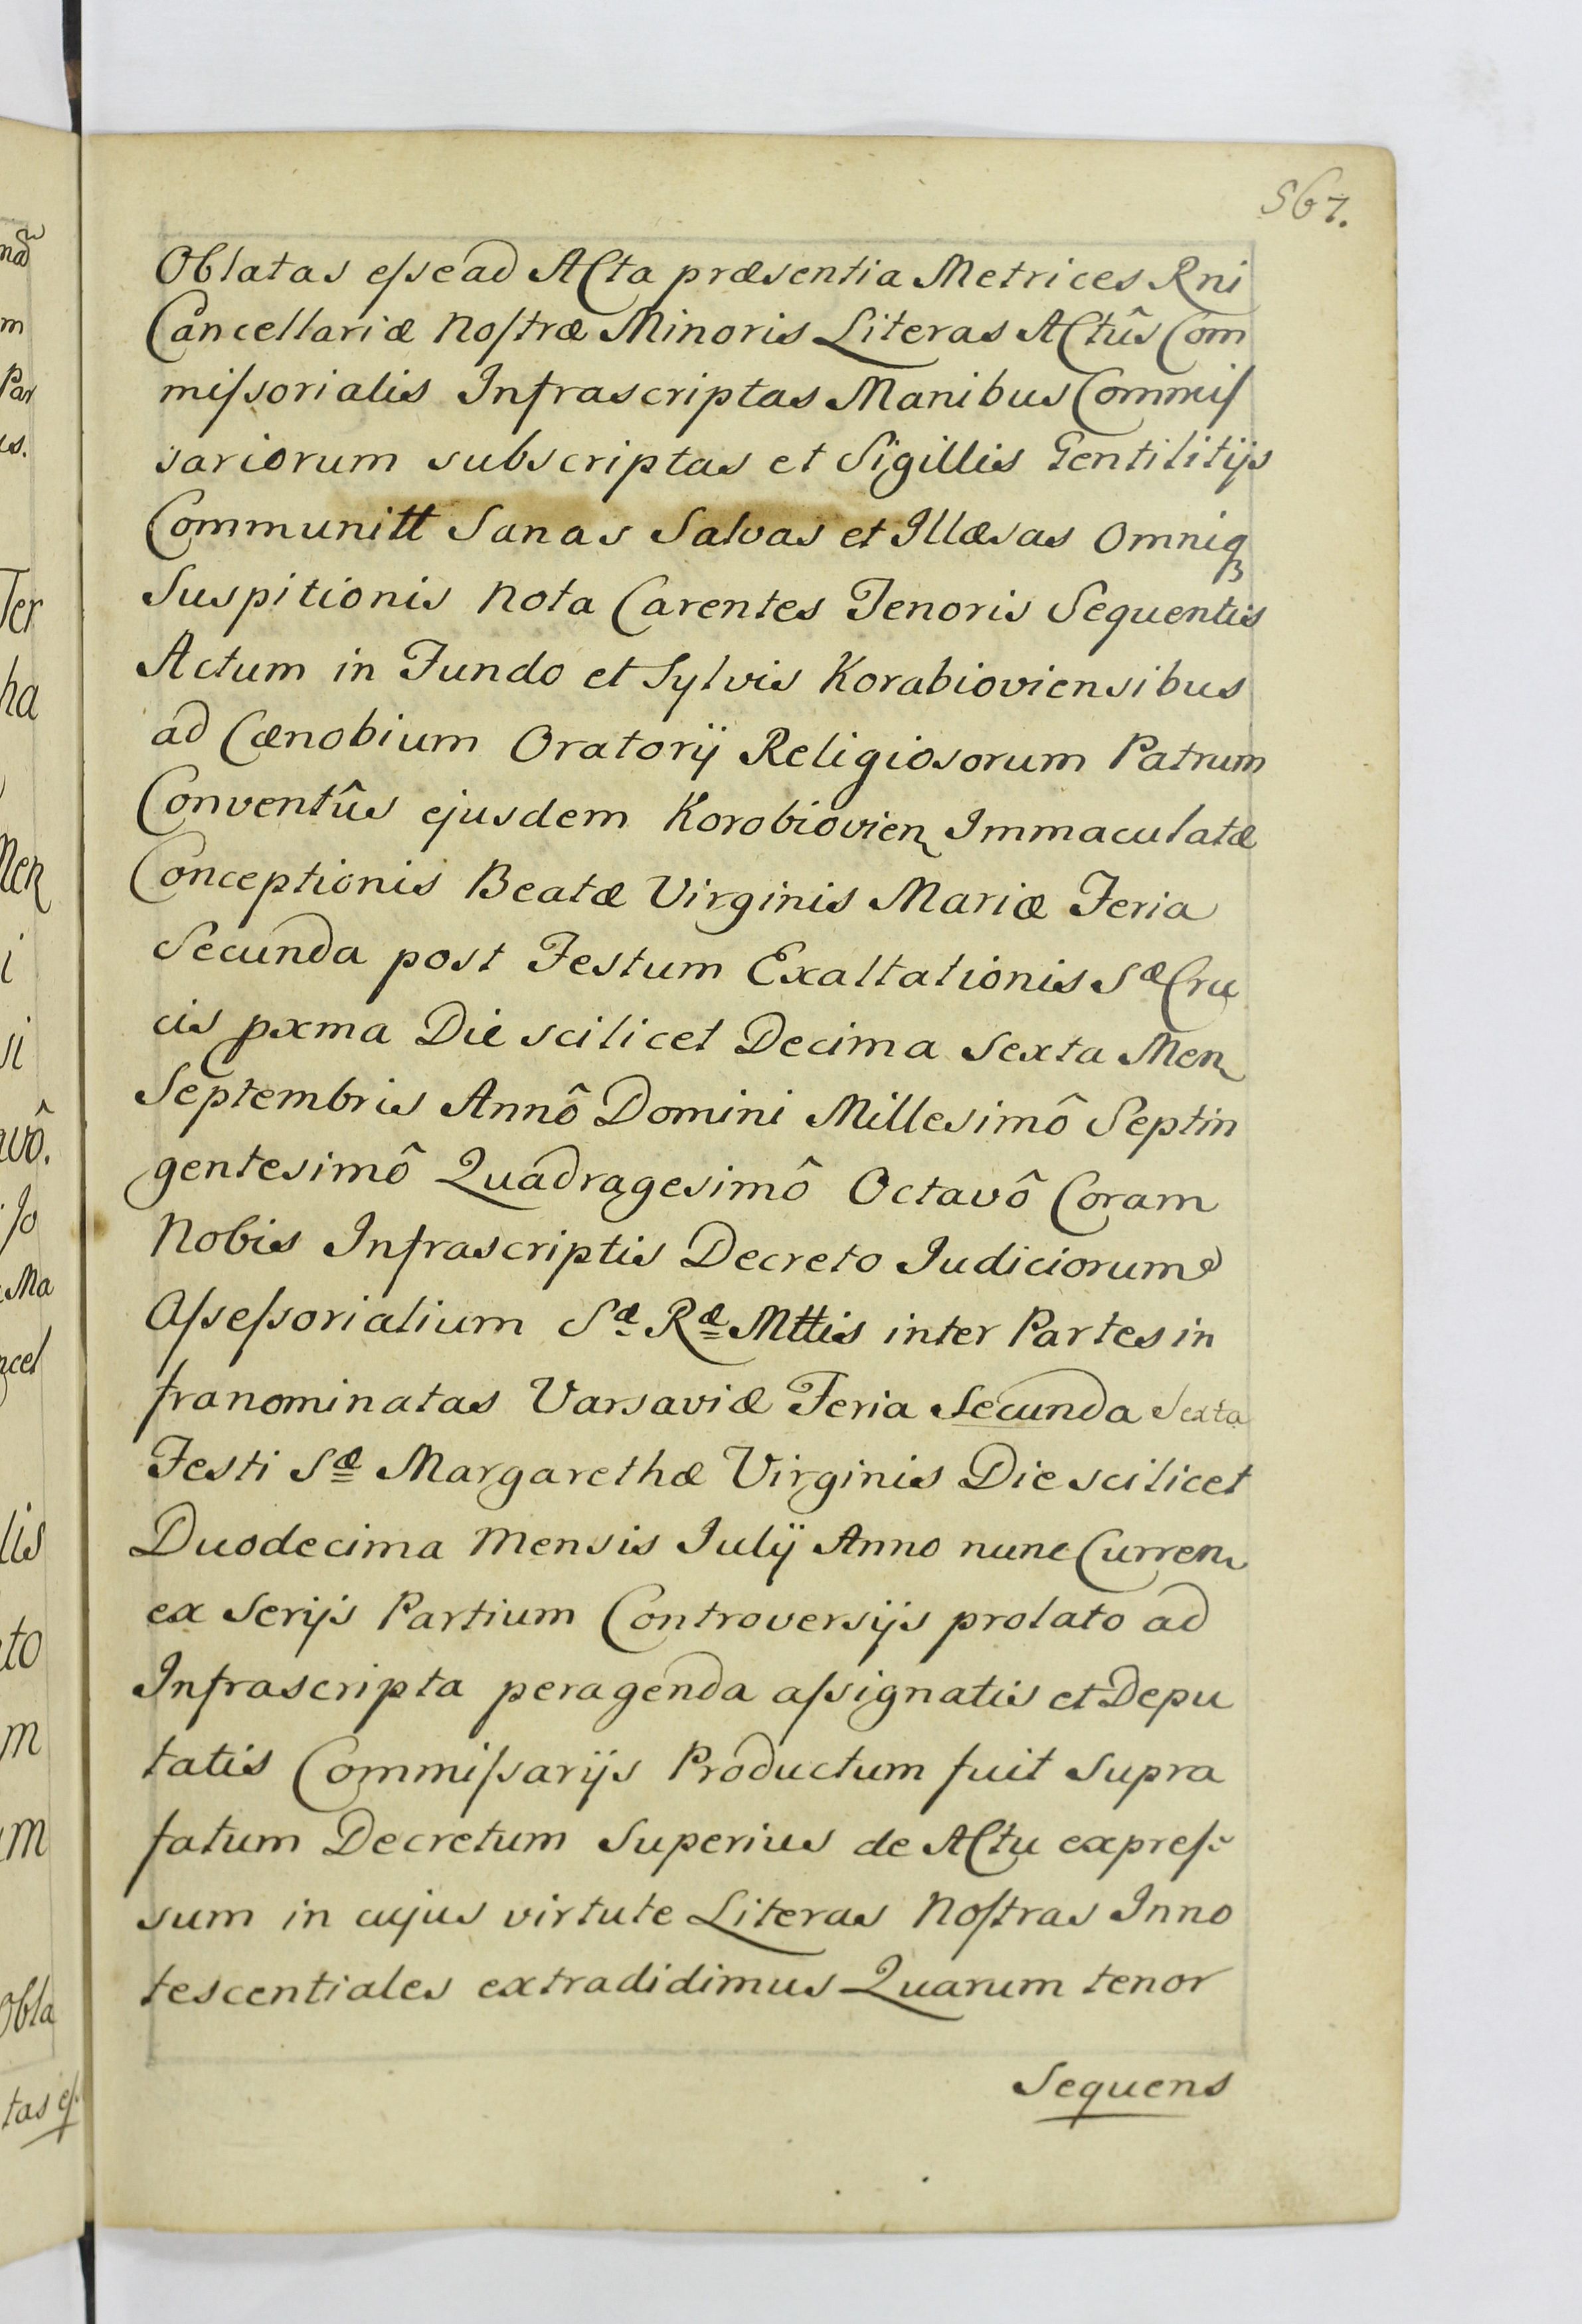 567.
Oblatas eſse ad Acta præsentia Metrices Rni
Cancellariæ Noſtræ Minoris Literas Actûs Com
miſsorialis Infrascriptas Manibus Commiſ
sariorum subscriptas et Sigillis Gentilitijs
Communitt Sanas Salvas et Illæsas Omniqꝫ
Suspitionis Nota Carentes Tenoris Sequentis
Actum in Fundo et Sylvis Korabioviensibus
ad Cænobium Oratorij Religiosorum Patrum
Conventûs ejusdem Korobiovien Immaculatæ
Conceptionis Beatæ Virginis Mariæ Feria
Secunda post Festum Exaltationis Sæ Cru
cis pxma Die scilicet Decima Sexta Men
Septembris Annô Domini Millesimô Septin
gentesimô Quadragesimô Octavô Coram
Nobis Infrascriptis Decreto Iudiciorum
Aſseſsorialium Sæ Ræ Mttis inter Partes in
franominatas Varsaviæ Feria Secunda Sexta
Festi Sæ Margarethæ Virginis Die scilicet
Duodecima Mensis Iulij Anno nunc Curren
ex Serijs Partium Controversijs prolato ad
Infrascripta peragenda aſsignatis et Depu
tatis Commiſsarijs Productum fuit Supra
fatum Decretum Superius de Actu expreſ
sum in cujus virtute Literas Noſtras Inno
tescentiales extradidimus Quarum tenor
Sequens